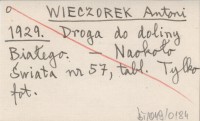 WIECZOREK Antoni
1929. Droga do doliny
Białego. — Naokoło
Świata nr 57, tabl. Tylko
fot.